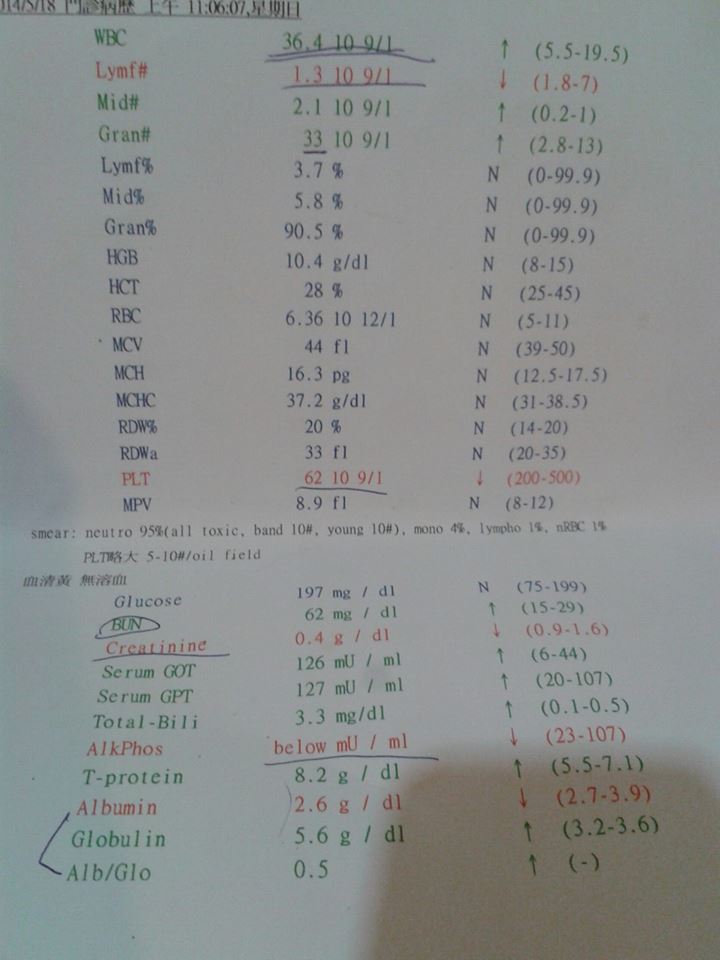 014/5/18 門診病歷 上午 11:06:07,星期日
WBC 36.4 10 9/l ↑ (5.5-19.5)
Lymf# 1.3 10 9/l ↓ (1.8-7)
Mid# 2.1 10 9/l ↑ (0.2-1)
Gran# 33 10 9/l ↑ (2.8-13)
Lymf% 3.7 % N (0-99.9)
Mid% 5.8 % N (0-99.9)
Gran% 90.5 % N (0-99.9)
HGB 10.4 g/dl N (8-15)
HCT 28 % N (25-45)
RBC 6.36 10 12/l N (5-11)
MCV 44 fl N (39-50)
MCH 16.3 pg N (12.5-17.5)
MCHC 37.2 g/dl N (31-38.5)
RDW% 20 % N (14-20)
RDWa 33 fl N (20-35)
PLT 62 10 9/l ↓ (200-500)
MPV 8.9 fl N (8-12)
smear: neutro 95%(all toxic, band 10#, young 10#), mono 4%, lympho 1%, nRBC 1%
PLT略大 5-10#/oil field
血清黃 無溶血
Glucose 197 mg / dl N (75-199)
BUN 62 mg / dl ↑ (15-29)
Creatinine 0.4 g / dl ↓ (0.9-1.6)
Serum GOT 126 mU / ml ↑ (6-44)
Serum GPT 127 mU / ml ↑ (20-107)
Total-Bili 3.3 mg/dl ↑ (0.1-0.5)
AlkPhos below mU / ml ↓ (23-107)
T-protein 8.2 g / dl ↑ (5.5-7.1)
Albumin 2.6 g / dl ↓ (2.7-3.9)
Globulin 5.6 g / dl ↑ (3.2-3.6)
Alb/Glo 0.5 ↑ (-)